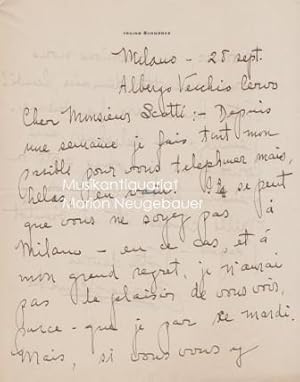 Milano - 25 sept.
Albergo Vecchio Cervo
Cher Monsieur Scotti :- Depuis
une semaine je fais tout mon
possible pour vous telephoner mais,
helas - en vain. Il se peut
Musikantiquariat
Marion Neugebauer
que vous ne soyez pas à
Milano - en ce cas, et á
mon grand regret, je n'aurai
pas le plaisir de vous voir,
parce - que je par ce mardi.
Mais, si vous vous y